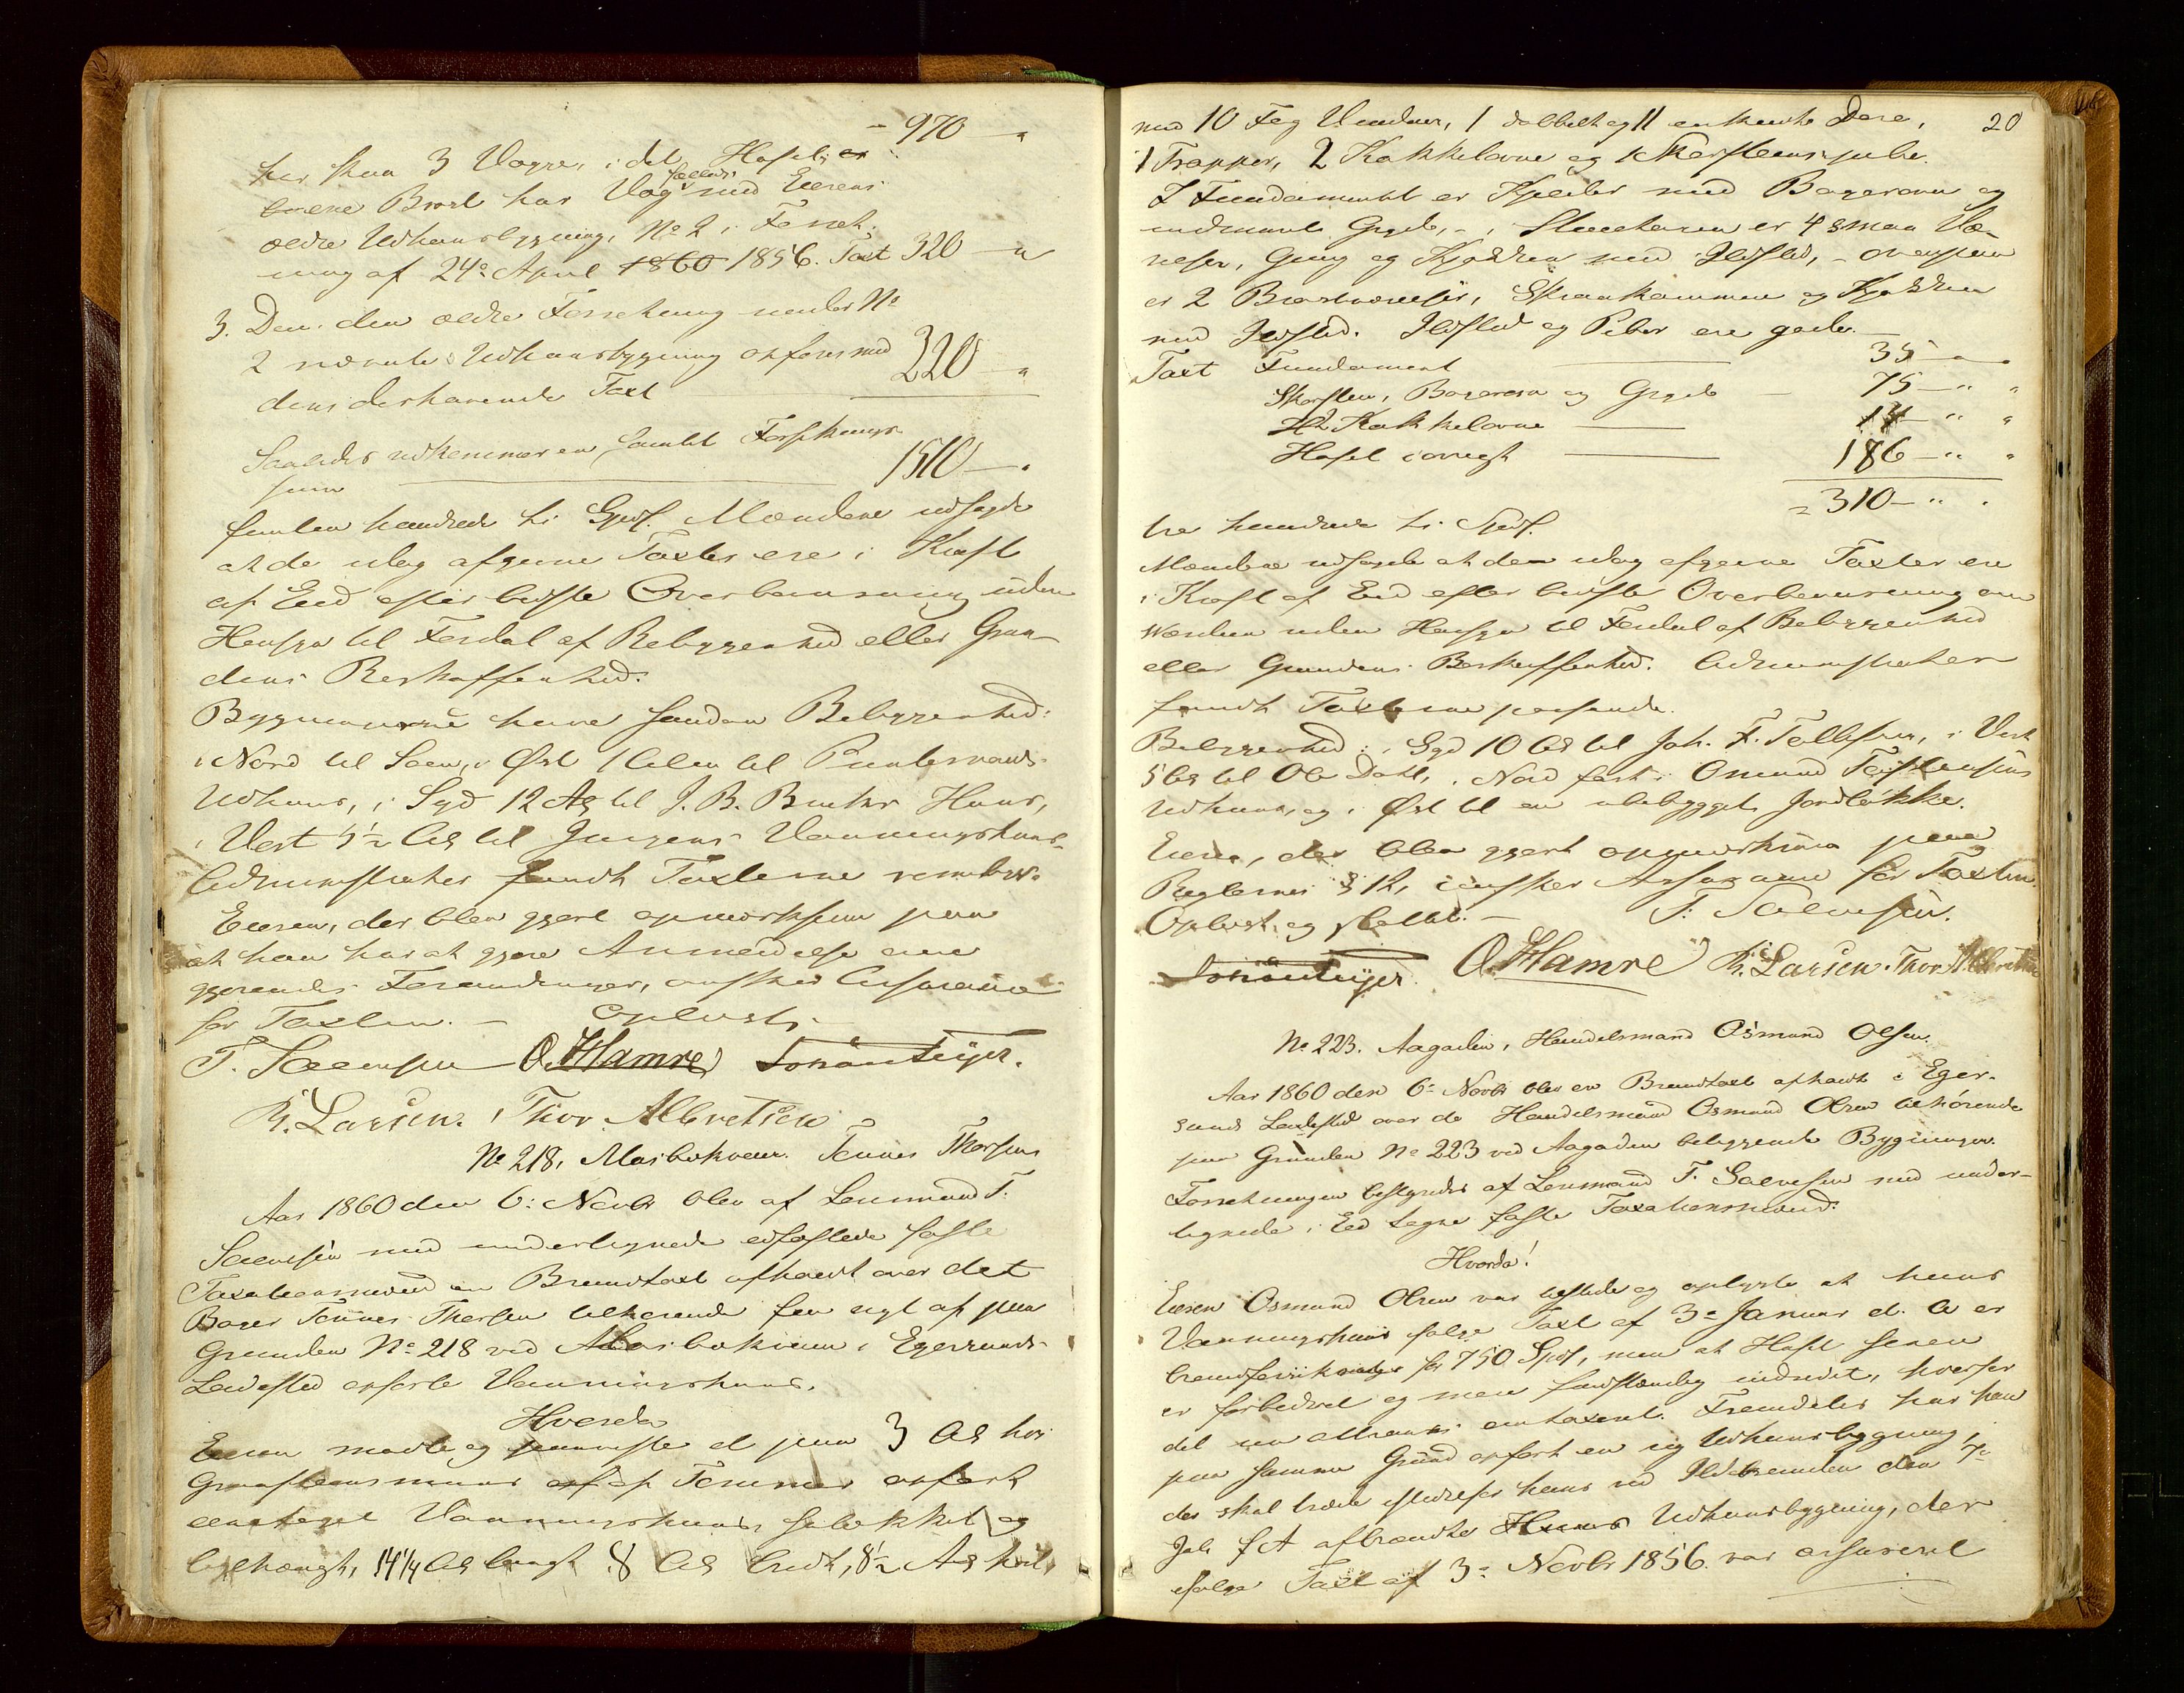 970 — "
har kun 3 Vægge, i det Huset, er
Brast har Væg fælleds med Eierens
ældre Udhuusbygning, No 2 i Forret-
ning af 24de April 1860 1856. Taxt 320 — "
3. Den i den ældre Forretning under No
2 nævnte Udhuusbygning opføres med
dens derhavende Taxt 220 — "
Saaledes udkommer en samlet Forsikrings
sum 1510 — "
femten hundrede ti Spds. Mændene udsagde
at de idag afgivne Taxter ere i Kraft
af Eed efter bedste Overbeviisning uden
Hensyn til Fordel af Bebyggenhed eller Grun-
dens Beskaffenhed.
Bygningerne have saadan Beliggenhed:
i Nord til Søen, i Øst Alen til
Udhuus, i Syd 12 Al til J. B. Huus,
i Vest 5½ Al til Jungens Vaaningshuus.
Administrator fandt Taxterne
Eieren, der blev gjort opmærksom paa
at han har at gjøre Anmeldelse om
gjørende Forandringer, ønsker Assurance
for Taxten. — Oplæst,
T. Salvesen O. Hamre
R. Larsen. Thor Albretsen
No 218, Mosbekveien. Tønnes Thorsens
Aar 1860 den 6: Novbr blev af Lensmand T.
Salvesen med undertegnede edfæstede faste
Taxationsmænd en Brandtaxt afholdt over det
Bager Tønnes Thorsen tilhørende fra nyt af paa
Grunden No 218 ved Mosbekveien i Egersunds
Ladested opførte Vaaningshuus.
Hvorda
Eieren mødte og paaviste et paa 3 Al høi
Graasteensmuur af Tømmer opført
eenetages Vaaningshuus, og
14¼ Al langt 8 Al bredt, 8½ Al høit,
20
med 10 Fag Vinduer, 1 dobbelt og 11 enkelte Døre,
1 Trapper, 2 Kakkelovne og 1 Skorsteenspibe.
I Fundamentet er Kjelder med Bagerovn og
indmuret Gryde, – i Stueetagen er 4 smaa Væ-
relser, Gang og Kjøkken med Ildsted, – ovenpaa
er 2 Brastværelser, Skraakammer og Kjøkken
med Ildsted. Ildsted og Piber ere gode. —
Taxt Fundament — 35 — " "
Skorsteen, Bagerovn og Gryde — 75 — " "
2 Kakkelovne — 14 — " "
Huset iøvrigt — 186 — " "
= 310 — " "
tre hundrede ti Spds.
Mændene udsagde at de idag afgivne Taxter ere
i Kraft af Eed efter bedste Overbeviisning om
Værdien uden Hensyn til Fordel af Beliggenhed
eller Grundens Beskaffenhed. Administrator
fandt Taxterne passende.
Beliggenhed: i Syd 10 Al til Joh. F. Tollefsen, i Vest
5 Al til Ole Dahl, i Nord fast i Omund
Udhuus, og i Øst til en ubebygget Jordløkke.
Eieren, der blev gjort opmærksom paa
Reglernes § 12, ønsker Assurance for Taxten.
Oplæst, og sluttet. — T: Salvesen.
O. Hamre R. Larsen. Thor Albretsen
No 223. Aagaden, Handelsmand Osmund Olsen.
Aar 1860 den 6: Novbr blev en Brandtaxt afholdt i Eger-
sunds Ladested over de Handelsmand Osmund Olsen tilhørende
paa Grunden No 223 ved Aagaden beliggende Bygninger.
Forretningen bestyredes af Lensmand T. Salvesen med under-
tegnede i Eed tagne faste Taxationsmænd.
Hvorda!
Eieren Osmund Olsen var tilstede og oplyste at hans
Vaaningshuus ifølge Taxt af 3de Januar d. A er
brandforsikret for 750 Spds, men at Huset senere
er forbedret og mere fuldstændig indredet, hvorfor
det nu attraaes omtaxeret. Fremdeles har han
paa samme Grund opført en ny Udhuusbygning,
der skal træde istedetfor hans ved Ildebranden den 7de
Juli f A afbrændte Huus Udhuusbygning, der
ifølge Taxt af 3de Novbr 1856 var assureret